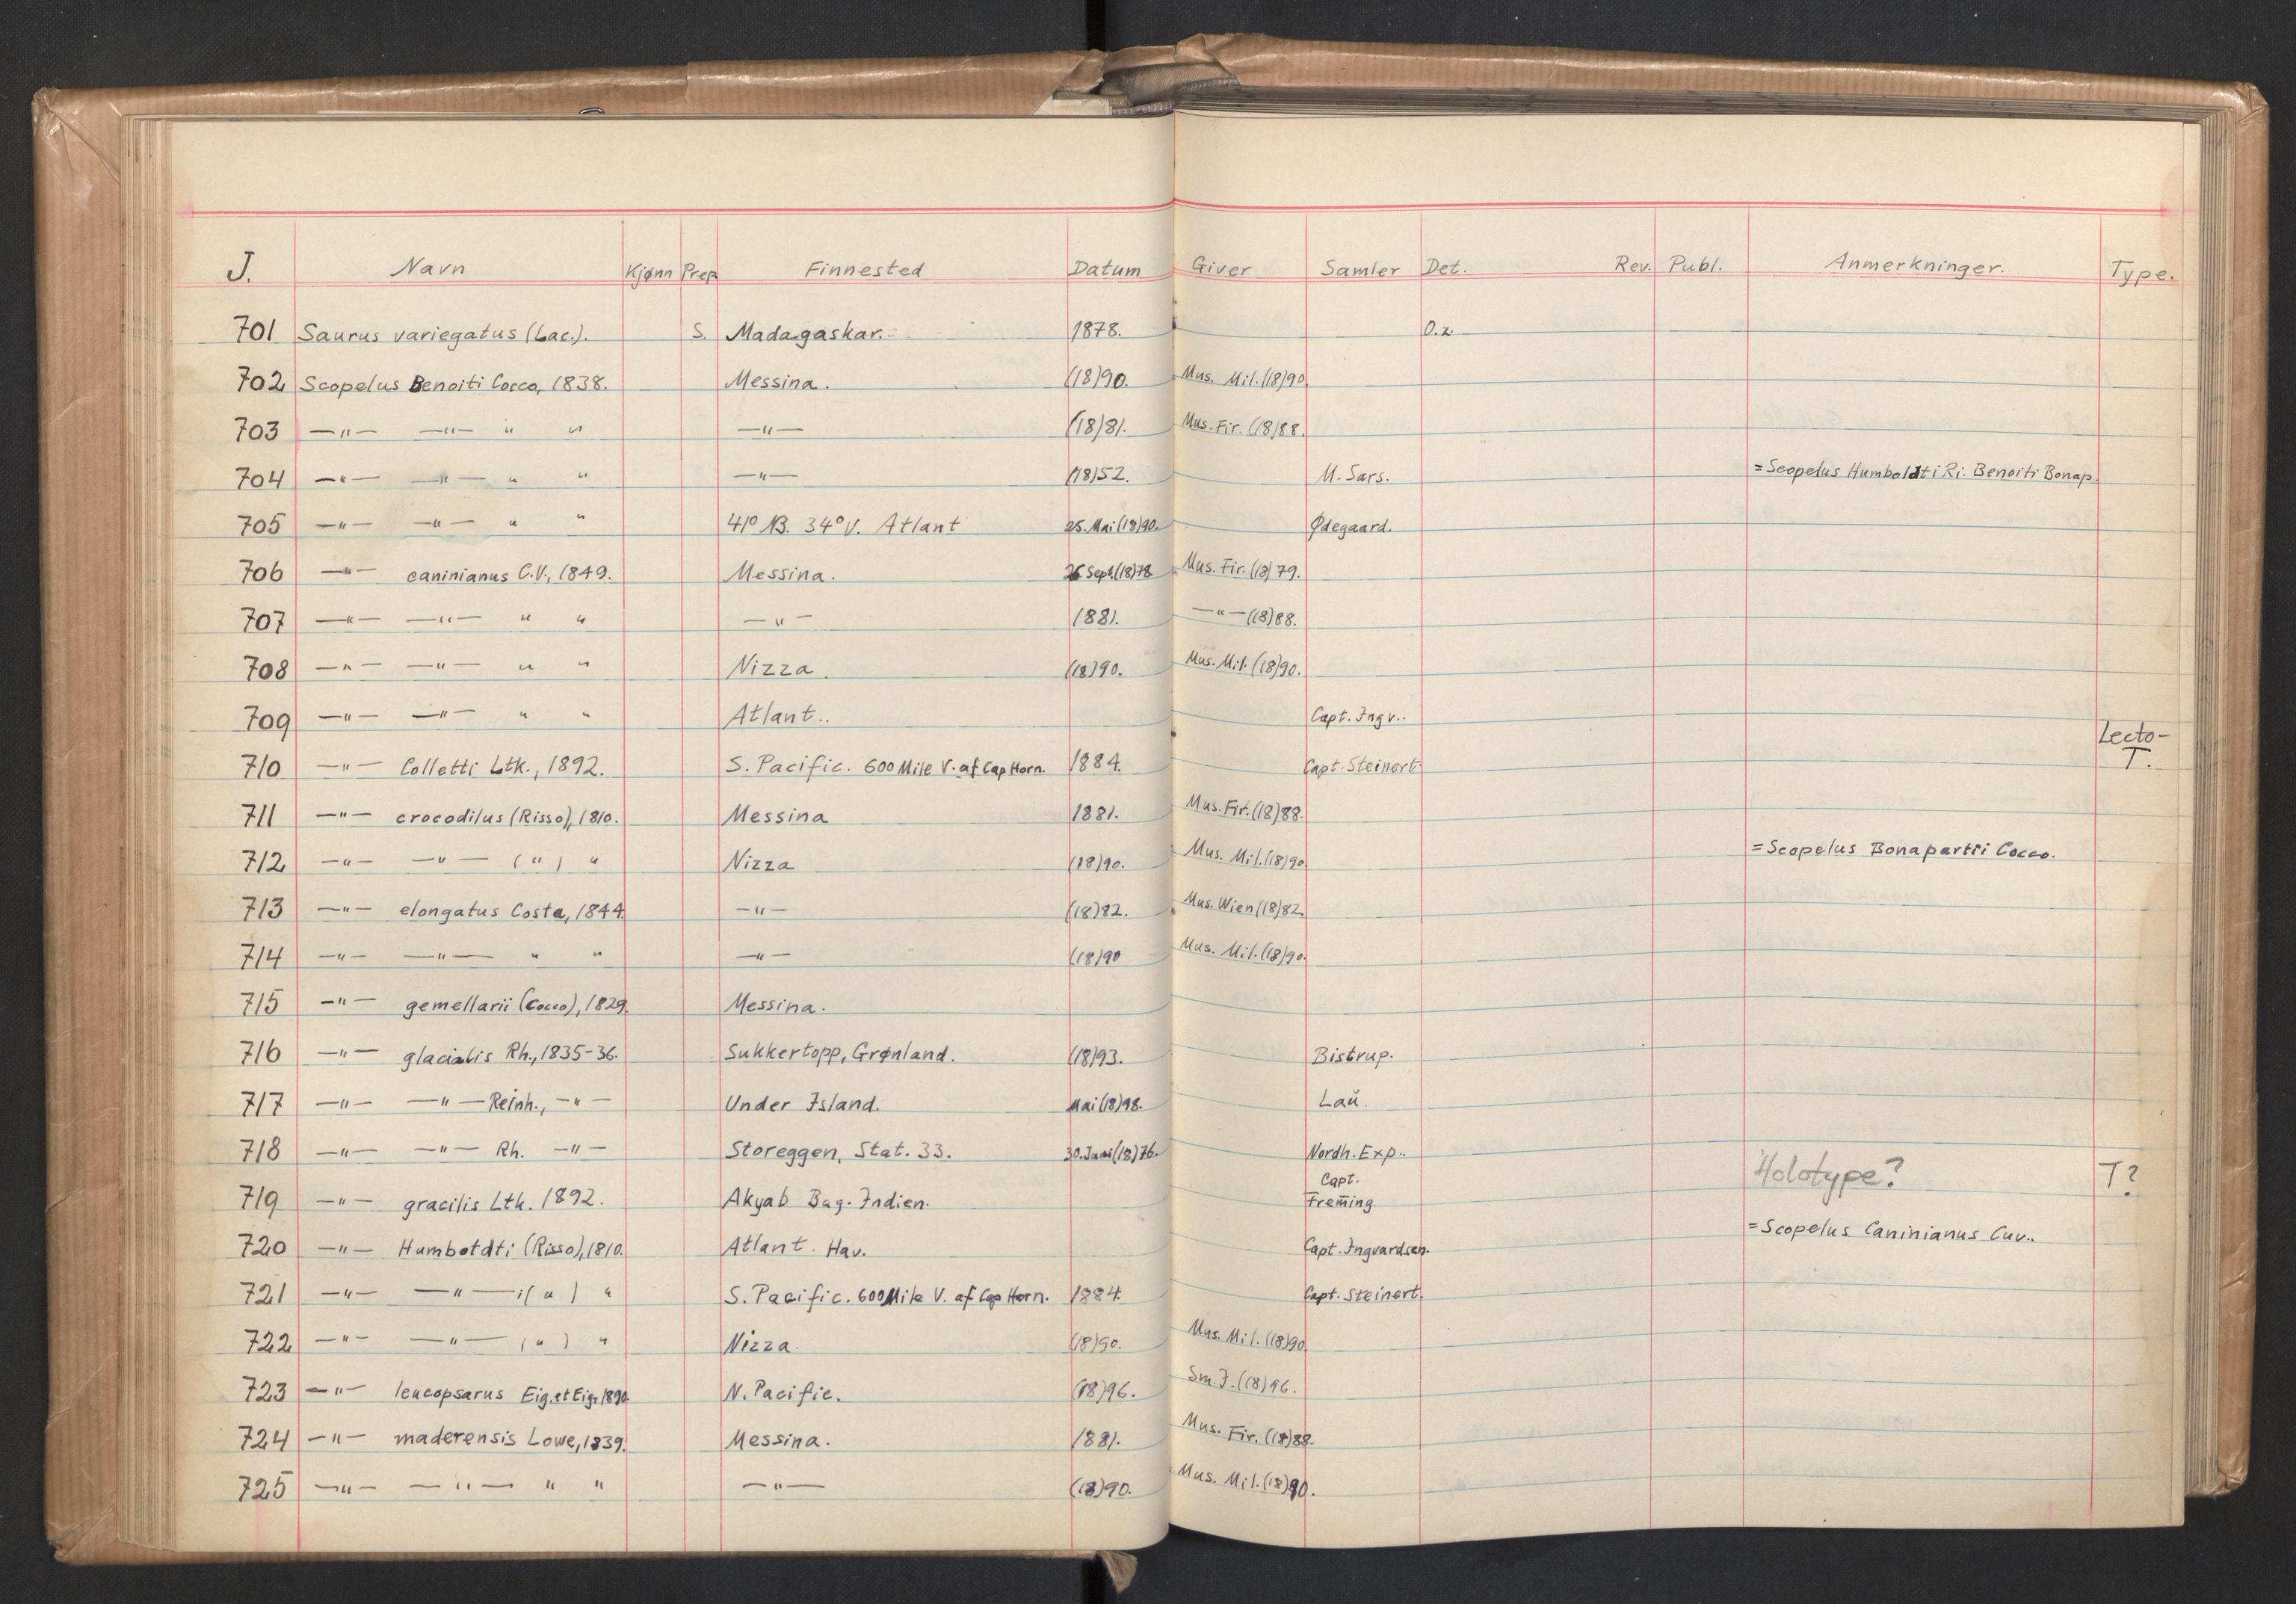 J. Navn Kjønn Prep. Finnested Datum Giver Samler Det. Rev. Publ. Anmerkninger. Type.
701 Saurus variegatus (Lac.). S. Madagaskar. 1878. O.z.
702 Scopelus Benoiti Cocco, 1838. Messina. (18)90. Mus. Mil. (18)90
703 —"— —"— " " —"— (18)81. Mus. Fir. (18)88.
704 —"— —"— " " —"— (18)52. M. Sars. = Scopelus Humboldti Ri. Benoiti Bonap.
705 —"— —"— " " 41° NB. 34° V. Atlant 25. Mai (18)90. Ødegaard.
706 —"— caninianus C.V., 1849. Messina. Sept. (18)78 Mus. Fir. (18)79.
707 —"— —"— " " —"— 1881. —"— (18)88.
708 —"— —"— " " Nizza. (18)90. Mus. Mil. (18)90.
709 —"— —"— " " Atlant.. Capt. Ingv..
710 —"— Colletti Ltk., 1892. S. Pacific. 600 Mile V. af Cap Horn. 1884. Capt. Steinert. Lecto-
T.
711 —"— crocodilus (Risso), 1810. Messina 1881. Mus. Fir. (18)88.
712 —"— —"— (") " Nizza (18)90. Mus. Mil. (18)90. = Scopelus Bonapartii Cocco.
713 —"— elongatus Costa, 1844. —"— (18)82. Mus. Wien (18)82.
714 —"— —"— " " —"— (18)90 Mus. Mil. (18)90.
715 —"— gemellarii (Cocco), 1829. Messina.
716 —"— glacialis Rh., 1835-36. Sukkertopp, Grønland. (18)93. Bistrup.
717 —"— —"— Reinh., —"— Under Island. Mai (18)98. Laŭ.
718 —"— —"— Rh. —"— Storeggen, Stat. 33. 30. Juni (18)76. Nordh. Exp..
719 —"— gracilis Ltk. 1892. Akyab Bag. Indien. Capt.
Frem̄ing. Holotype? T?
720 —"— Humbotdti (Risso), 1810. Atlant. Hav. Capt. Ingvardsen. = Scopelus Caninianus Cuv..
721 —"— —"— i(") " S. Pacific. 600 Mile V. af Cap Horn. 1884. Capt. Steinert.
722 —"— —"— (") " Nizza. (18)90. Mus. Mil. (18)90
723 —"— leucopsarus Eig. et Eig. 1890. N. Pacific. (18)96. Sm. I. (18)96.
724 —"— maderensis Lowe, 1839. Messina. 1881. Mus. Fir. (18)88.
725 —"— —"— " " —"— (18)90. Mus. Mil. (18)90.